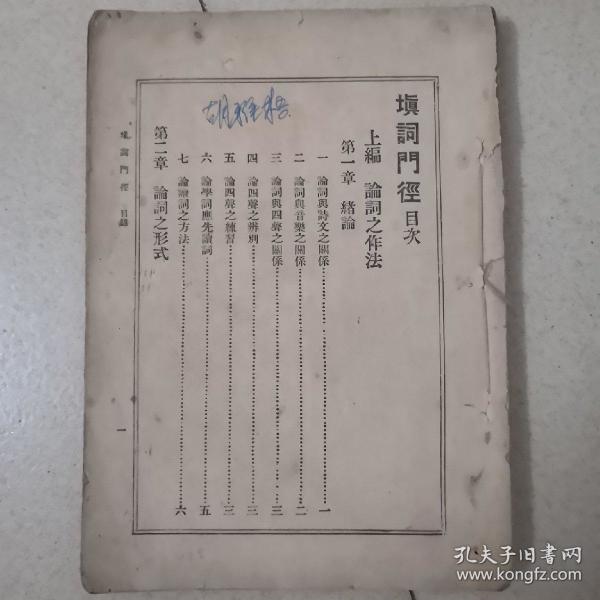 填詞門徑 目次
上編 論詞之作法
第一章 緒論
一 論詞與詩文之關係 一
二 論詞與音樂之關係 二
三 論詞與四聲之關係 三
四 論四聲之辨別 三
五 論四聲之練習 三
六 論學詞應先讀詞 五
七 論讀詞之方法 六
第二章 論詞之形式
填詞門徑 目錄
一
孔夫子旧书网
www.kongfz.com